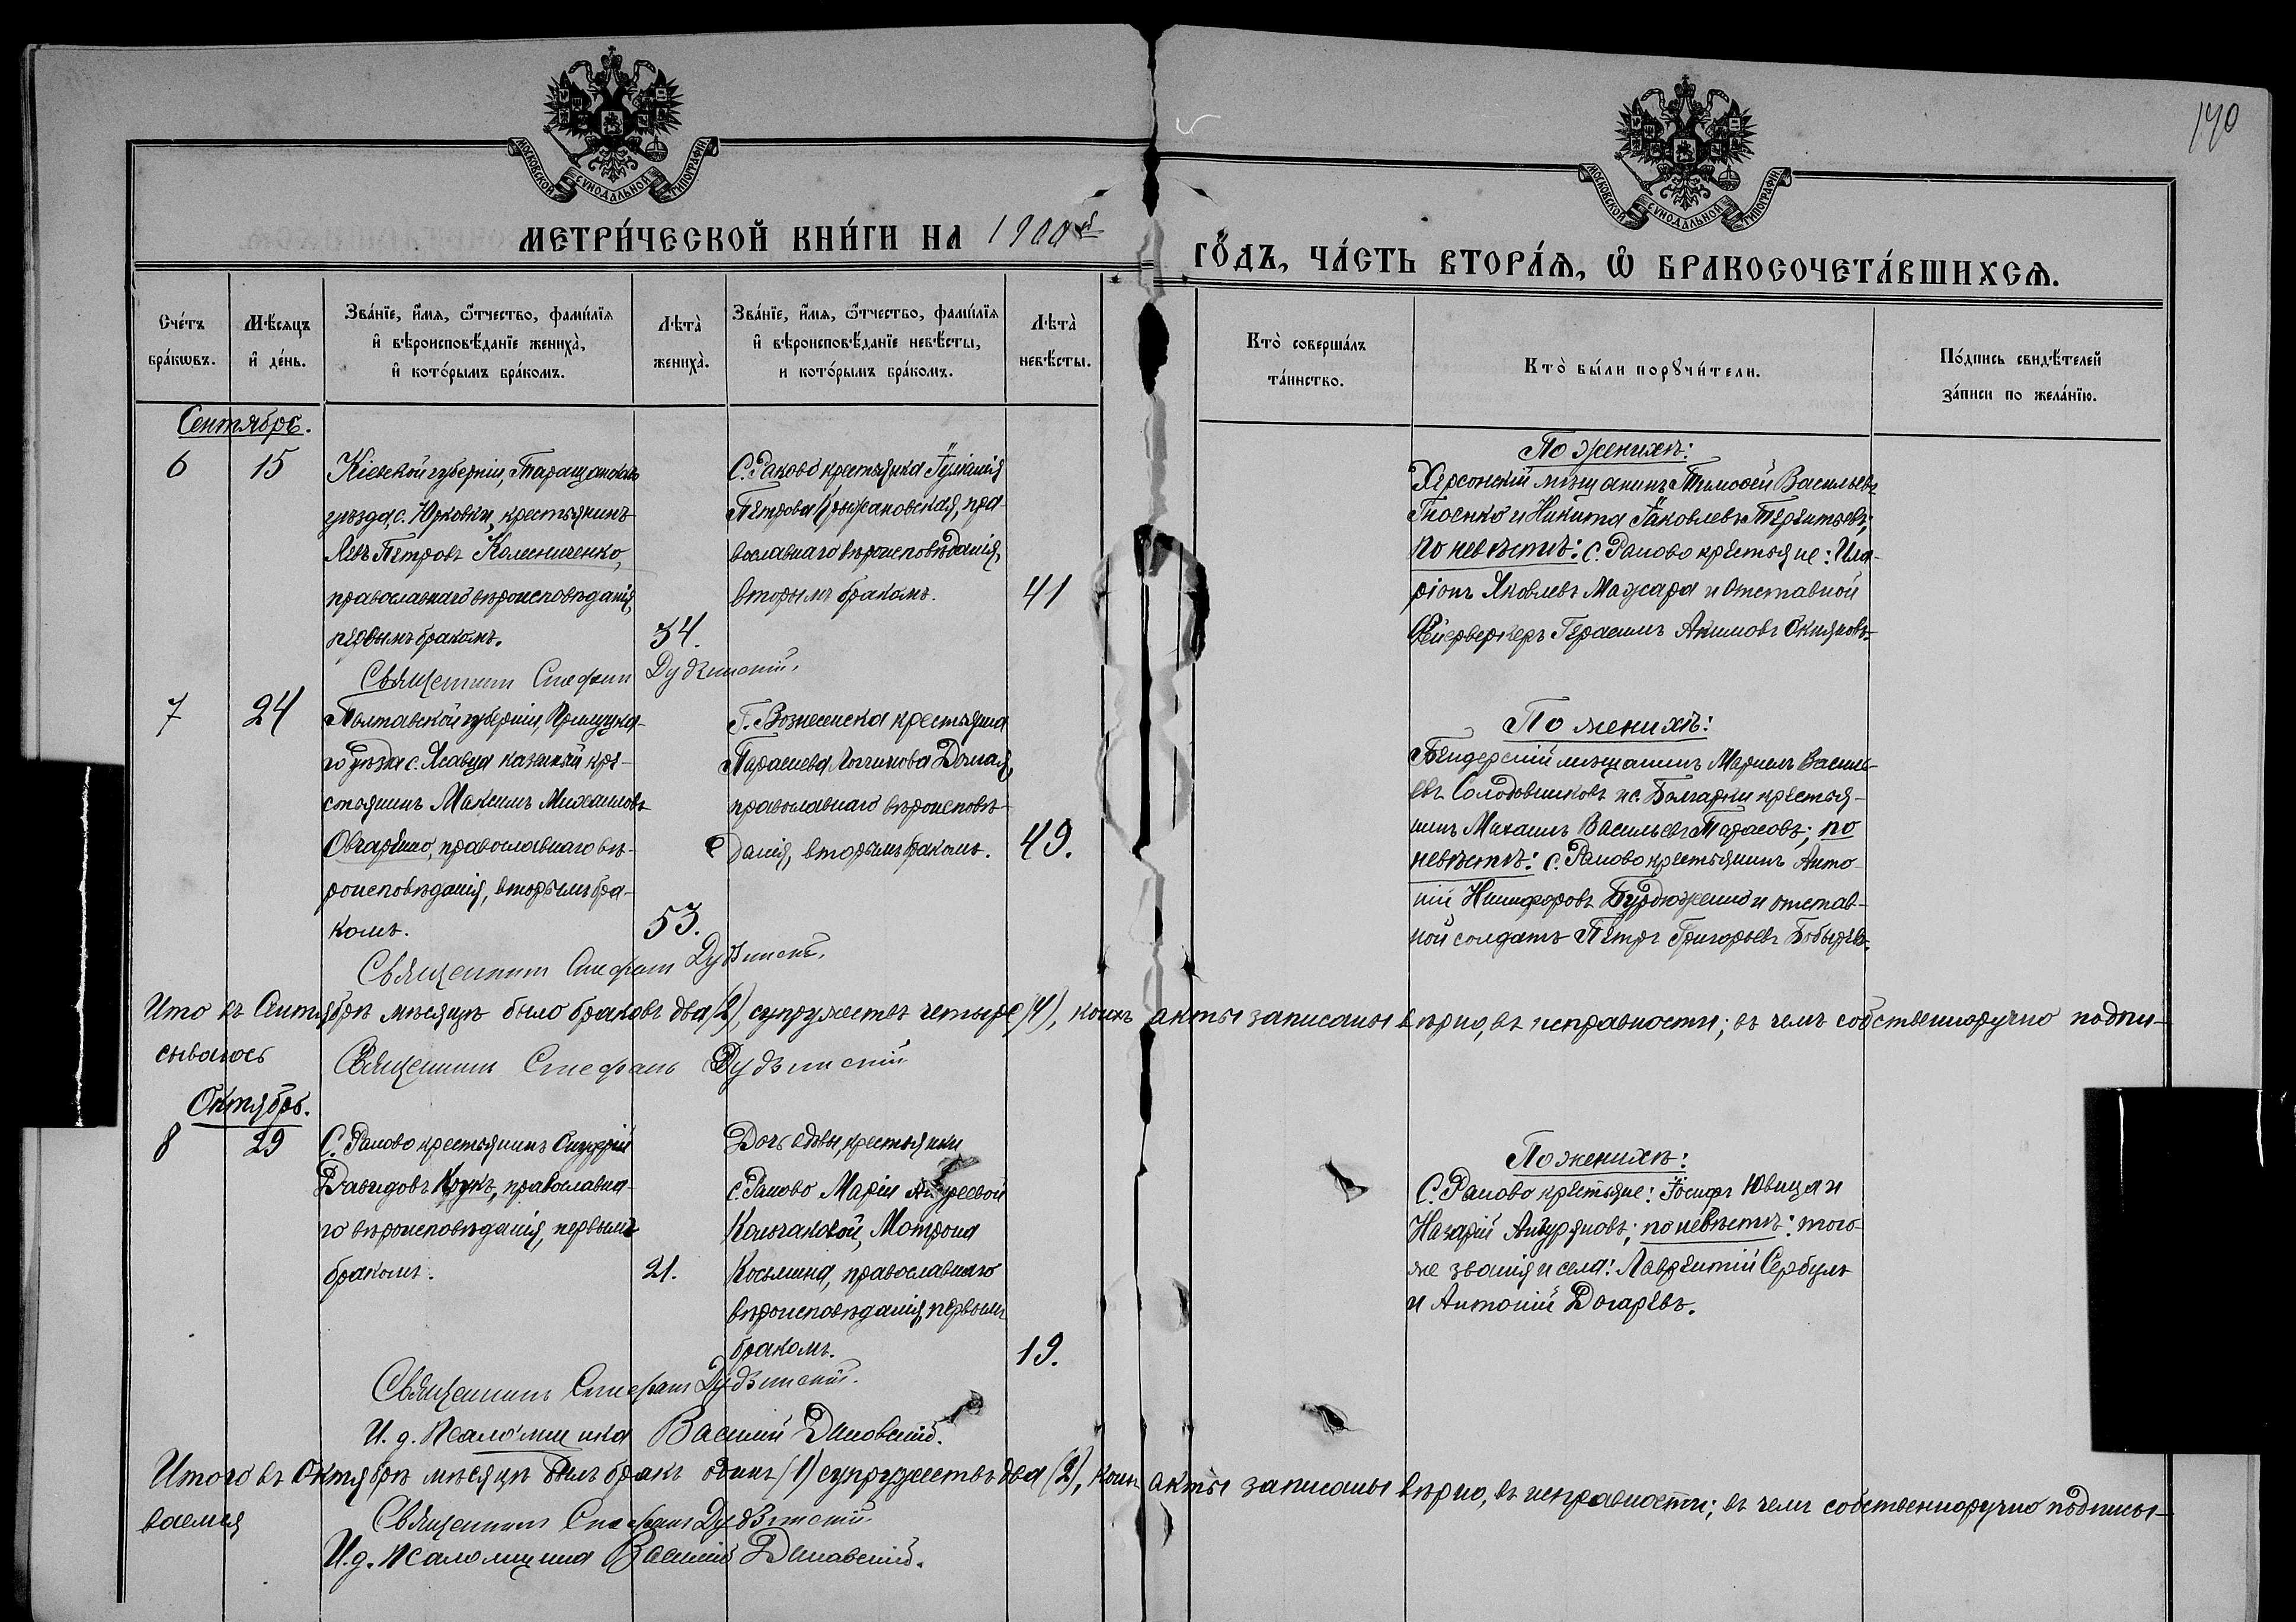 190
МОСКОВСКОЙ СѴНОДАЛЬНОЙ ТИПОГРАФІИ
МОСКОВСКОЙ СѴНОДАЛЬНОЙ ТИПОГРАФІИ
МЕТРИ́ЧЕСКОЙ КНИ́ГИ НА 1900й
ГО́ДЪ, ЧА́СТЬ ВТОРА́Ѧ, Ѽ БРАКОСОЧЕТА́ВШИХСѦ.
Сче́тъ бра́кѡвъ.
Мѣ́сяцъ и҆ де́нь.
Зва́нїе, и҆́мѧ, ѻ҆́тчество, фами́лїѧ
и҆ вѣроисповѣ́данїе жениха̀,
и҆ кото́рымъ бра́комъ.
Лѣта̀ жениха̀.
Зва́нїе, и҆́мѧ, ѻ҆́тчество, фами́лїѧ
и҆ вѣроисповѣ́данїе невѣ́сты,
и кото́рымъ бра́комъ.
Лѣта̀ невѣ́сты.
Кто̀ соверша́лъ
та́инство.
Кто̀ бы́ли порꙋчи́тели.
По́дпись свидѣ́телей
за́писи по жела́нїю.
Сентябрь.
6
15
Кіевской губерніи, Таращанскаго
уѣзда, с. Юрковки, крестьянинъ
Левъ Петровъ Колениченко,
православнаго вѣроисповѣданія,
первымъ бракомъ.
34.
С. Раково крестьянка Іуліанія
Петрова Крыжановская, пра-
вославнаго вѣроисповѣданія,
вторымъ бракомъ.
41
По женихѣ:
Херсонскій мѣщанинъ Тимоѳей Васильевъ
Гноенко и Никита Іаковлевъ Терентьевъ;
по невѣстѣ: с. Раково крестьяне: Ила-
ріонъ Яковлевъ Мажара и отставной
Фейерверкеръ Герасимъ Акимовъ
Священникъ Стефанъ Дудзинскій.
7
24
Полтавской губерніи, Прилуцка-
го уѣзда с. казенный кре-
стьянинъ Максимъ Михаиловъ
Овчаренко, православнаго вѣ-
роисповѣданія, вторымъ бра-
комъ.
53.
Г. Вознесенска крестьянка
Параскева Логгинова Долгая,
православнаго вѣроисповѣ-
данія, вторымъ бракомъ.
49.
По женихѣ:
Бендерскій мѣщанинъ Василь-
евъ Солодовниковъ и с. Болгарки крестья-
нинъ Михаилъ Васильевъ Тарасовъ; по
невѣстѣ: с. Раково крестьянинъ Анто-
ній Никифоровъ и отстав-
ной солдатъ Петръ Григорьевъ
Священникъ Стефанъ Дудзинскій.
Итого въ Сентябрѣ мѣсяцѣ было браковъ два (2), супружествъ четыре (4), коихъ акты записаны вѣрно, въ исправности; въ чемъ собственноручно подпи-
сываюсь
Священникъ Стефанъ Дудзинскій
Октябрь.
8
29
С. Раково крестьянинъ Онуфрій
Давидовъ православна-
го вѣроисповѣданія, первымъ
бракомъ.
21.
Дочь вдовы, крестьянки
с. Раково Маріи Андреевой
Колчаковой, Матрона
Косьмина, православнаго
вѣроисповѣданія, первымъ
бракомъ.
19.
По женихѣ:
С. Раково крестьяне: Іосифъ Ювица и
Назарій по невѣстѣ: того-
же званія и села: Лаврентій Сербулъ
и Антоній Догаревъ.
Священникъ Стефанъ Дудзинскій.
И. д. Псаломщика Василій
Итого въ Октябрѣ мѣсяцѣ былъ бракъ одинъ (1) супружествъ два (2), коихъ акты записаны вѣрно, въ исправности; въ чемъ собственноручно подписы-
ваемся
Священникъ Стефанъ Дудзинскій
И. д. псаломщика Василій